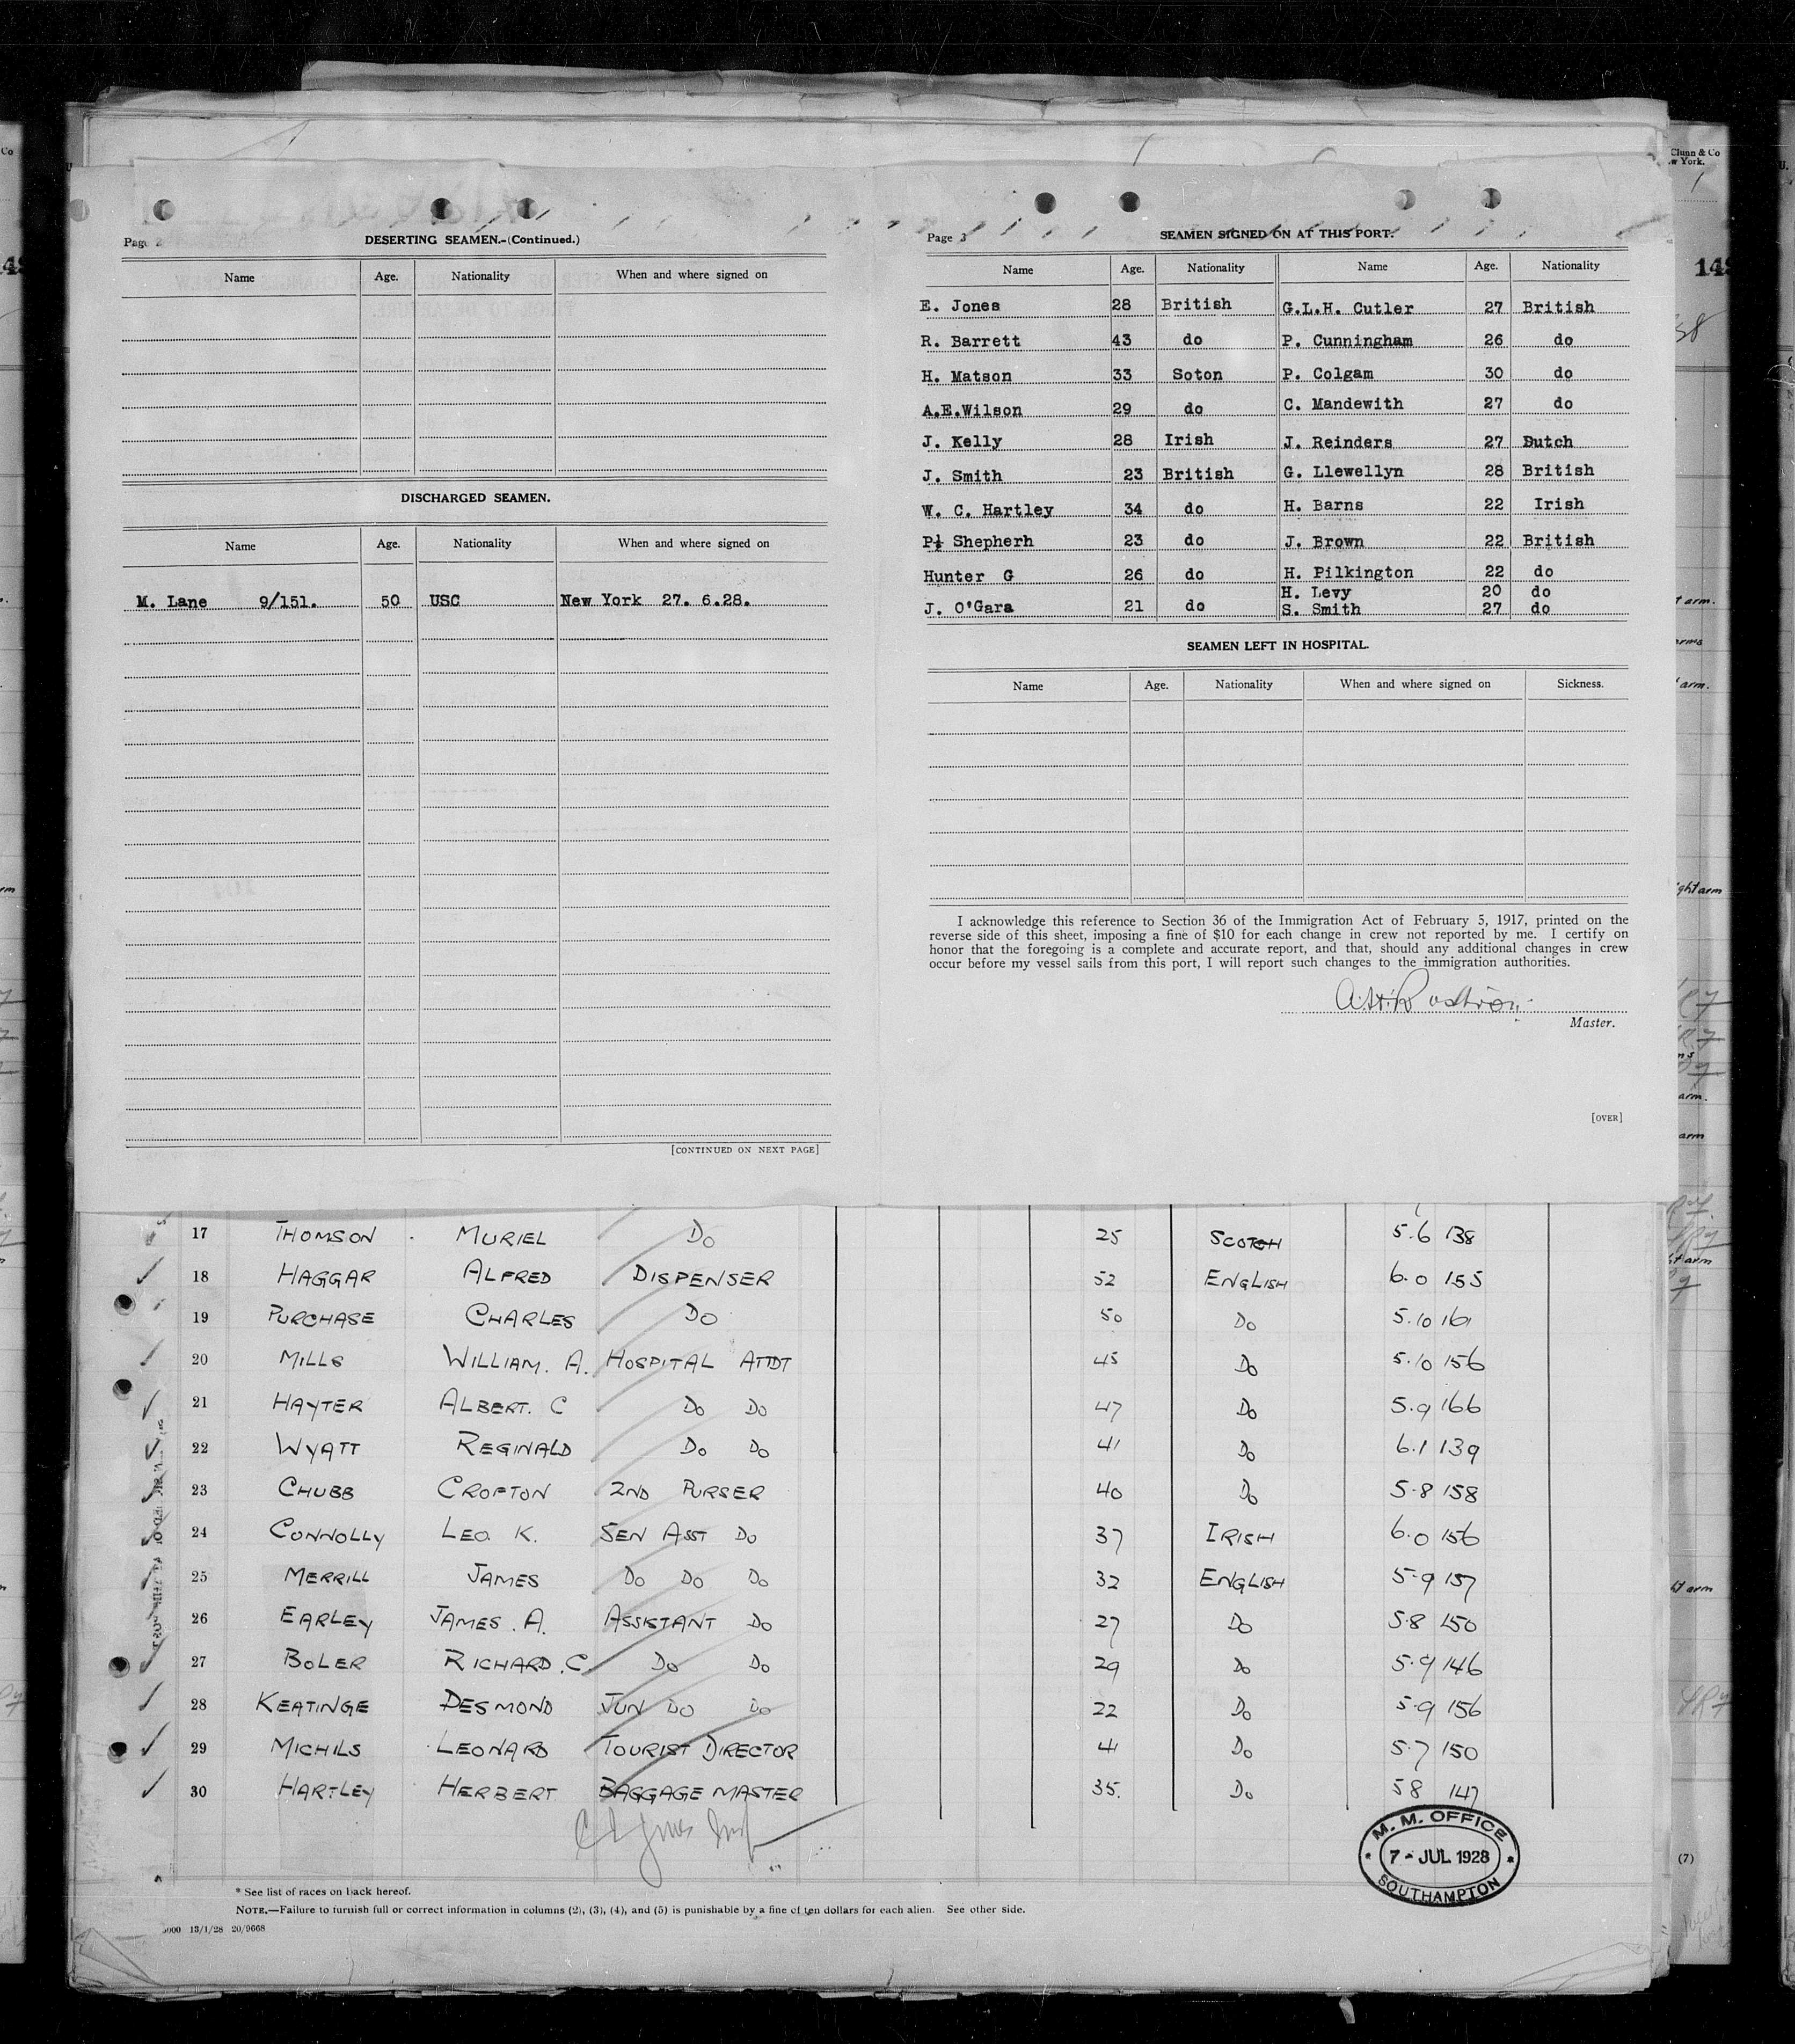 Page 2
DESERTING SEAMEN.-(Continued.)
Name Age. Nationality When and where signed on
DISCHARGED SEAMEN.
Name Age. Nationality When and where signed on
M. Lane 9/151. 50 USC New York 27. 6.28.
[CONTINUED ON NEXT PAGE]
Page 3
SEAMEN SIGNED ON AT THIS PORT.
Name Age. Nationality Name Age. Nationality
E. Jones 28 British G.L.H. Cutler 27 British
R. Barrett 43 do P. Cunningham 26 do
H. Matson 33 Soton P. Colgam 30 do
A.E.Wilson 29 do C. Mandewith 27 do
J. Kelly 28 Irish J. Reinders 27 Dutch
J. Smith 23 British G. Llewellyn 28 British
W. C. Hartley 34 do H. Barns 22 Irish
P. Shepherh 23 do J. Brown 22 British
Hunter G 26 do H. Pilkington 22 do
H. Levy 20 do
J. O'Gara 21 do S. Smith 27 do
SEAMEN LEFT IN HOSPITAL.
Name Age. Nationality When and where signed on Sickness.
I acknowledge this reference to Section 36 of the Immigration Act of February 5, 1917, printed on the
reverse side of this sheet, imposing a fine of $10 for each change in crew not reported by me. I certify on
honor that the foregoing is a complete and accurate report, and that, should any additional changes in crew
occur before my vessel sails from this port, I will report such changes to the immigration authorities.
A.H. Rostron
Master.
[OVER]
17 THOMSON MURIEL DO 25 SCOTCH 5.6 138
18 HAGGAR ALFRED DISPENSER 52 ENGLISH 6.0 155
19 PURCHASE CHARLES DO 50 DO 5.10 161
20 MILLS WILLIAM. A. HOSPITAL ATTDT 45 DO 5.10 156
21 HAYTER ALBERT. C DO DO 47 DO 5.9 166
22 WYATT REGINALD DO DO 41 DO 6.1 139
23 CHUBB CROFTON 2ND PURSER 40 DO 5.8 158
24 CONNOLLY LEO. K. SEN ASST DO 37 IRISH 6.0 156
25 MERRILL JAMES DO DO DO 32 ENGLISH 5.9 157
26 EARLEY JAMES. A. ASSISTANT DO 27 DO 5.8 150
27 BOLER RICHARD. C. DO DO 29 DO 5.9 146
28 KEATINGE DESMOND JUN DO DO 22 DO 5.9 156
29 MICHILS LEONARD TOURIST DIRECTOR 41 DO 5.7 150
30 HARTLEY HERBERT BAGGAGE MASTER 35. DO 5 8 147
M. M. OFFICE
7 - JUL 1928
SOUTHAMPTON
* See list of races on back hereof.
NOTE.—Failure to furnish full or correct information in columns (2), (3), (4), and (5) is punishable by a fine of ten dollars for each alien. See other side.
13/1/28 20/9668
Clunn & Co
w York.
148
t arm.
arms
arm.
ght arm
arm.
arm
t arm
ht arm
(7)